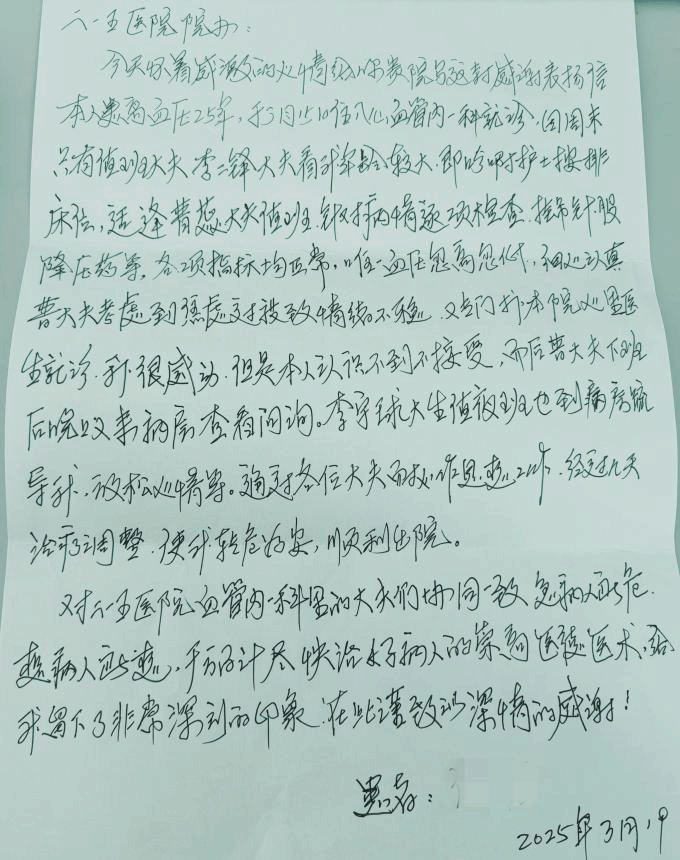 六一五医院院办:
今天怀着感激的心情给贵院写这封感谢表扬信
本人患高血压25年,我3月15日住入心血管内一科就诊.因周末
只有值班大夫李锋大夫看我年龄较大.即吩咐护士接排
床位,适逢曹燕大夫值班.针对病情逐项检查.挂吊针.服
降压药等.各项指标均正常.唯一血压忽高忽低,细心认真
曹大夫考虑到焦虑过投致情绪不稳.又专门找本院心里医
生就诊.我很感动.但是本人认识不到不接受,而后曹大夫下班
后晚上又来病房查看问询。李宇球大生值夜班也到病房疏
导我,放松心情等。通过各位大夫的工作.经过几天
治疗调整.使我转危为安,顺利出院。
对六一五医院血管内一科里的大夫们协同一致急病人所危.
想病人所想,千方百计尽快治好病人的崇高医德医术,给
我留下了非常深刻的印象.在此谨致以深情的感谢!
患者:
2025年3月19